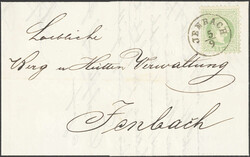 JENBACH
5/9
Loebliche
Berg u Hütten Verwaltung
Jenbach